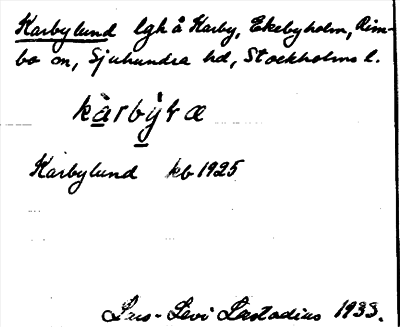 Karbylund lgh å Karby, Ekebyholm, Rim-
bo sn, Sjuhundra hd, Stockholms l.
Karbylund kb 1925
Lars-Levi Læstadius 1933.